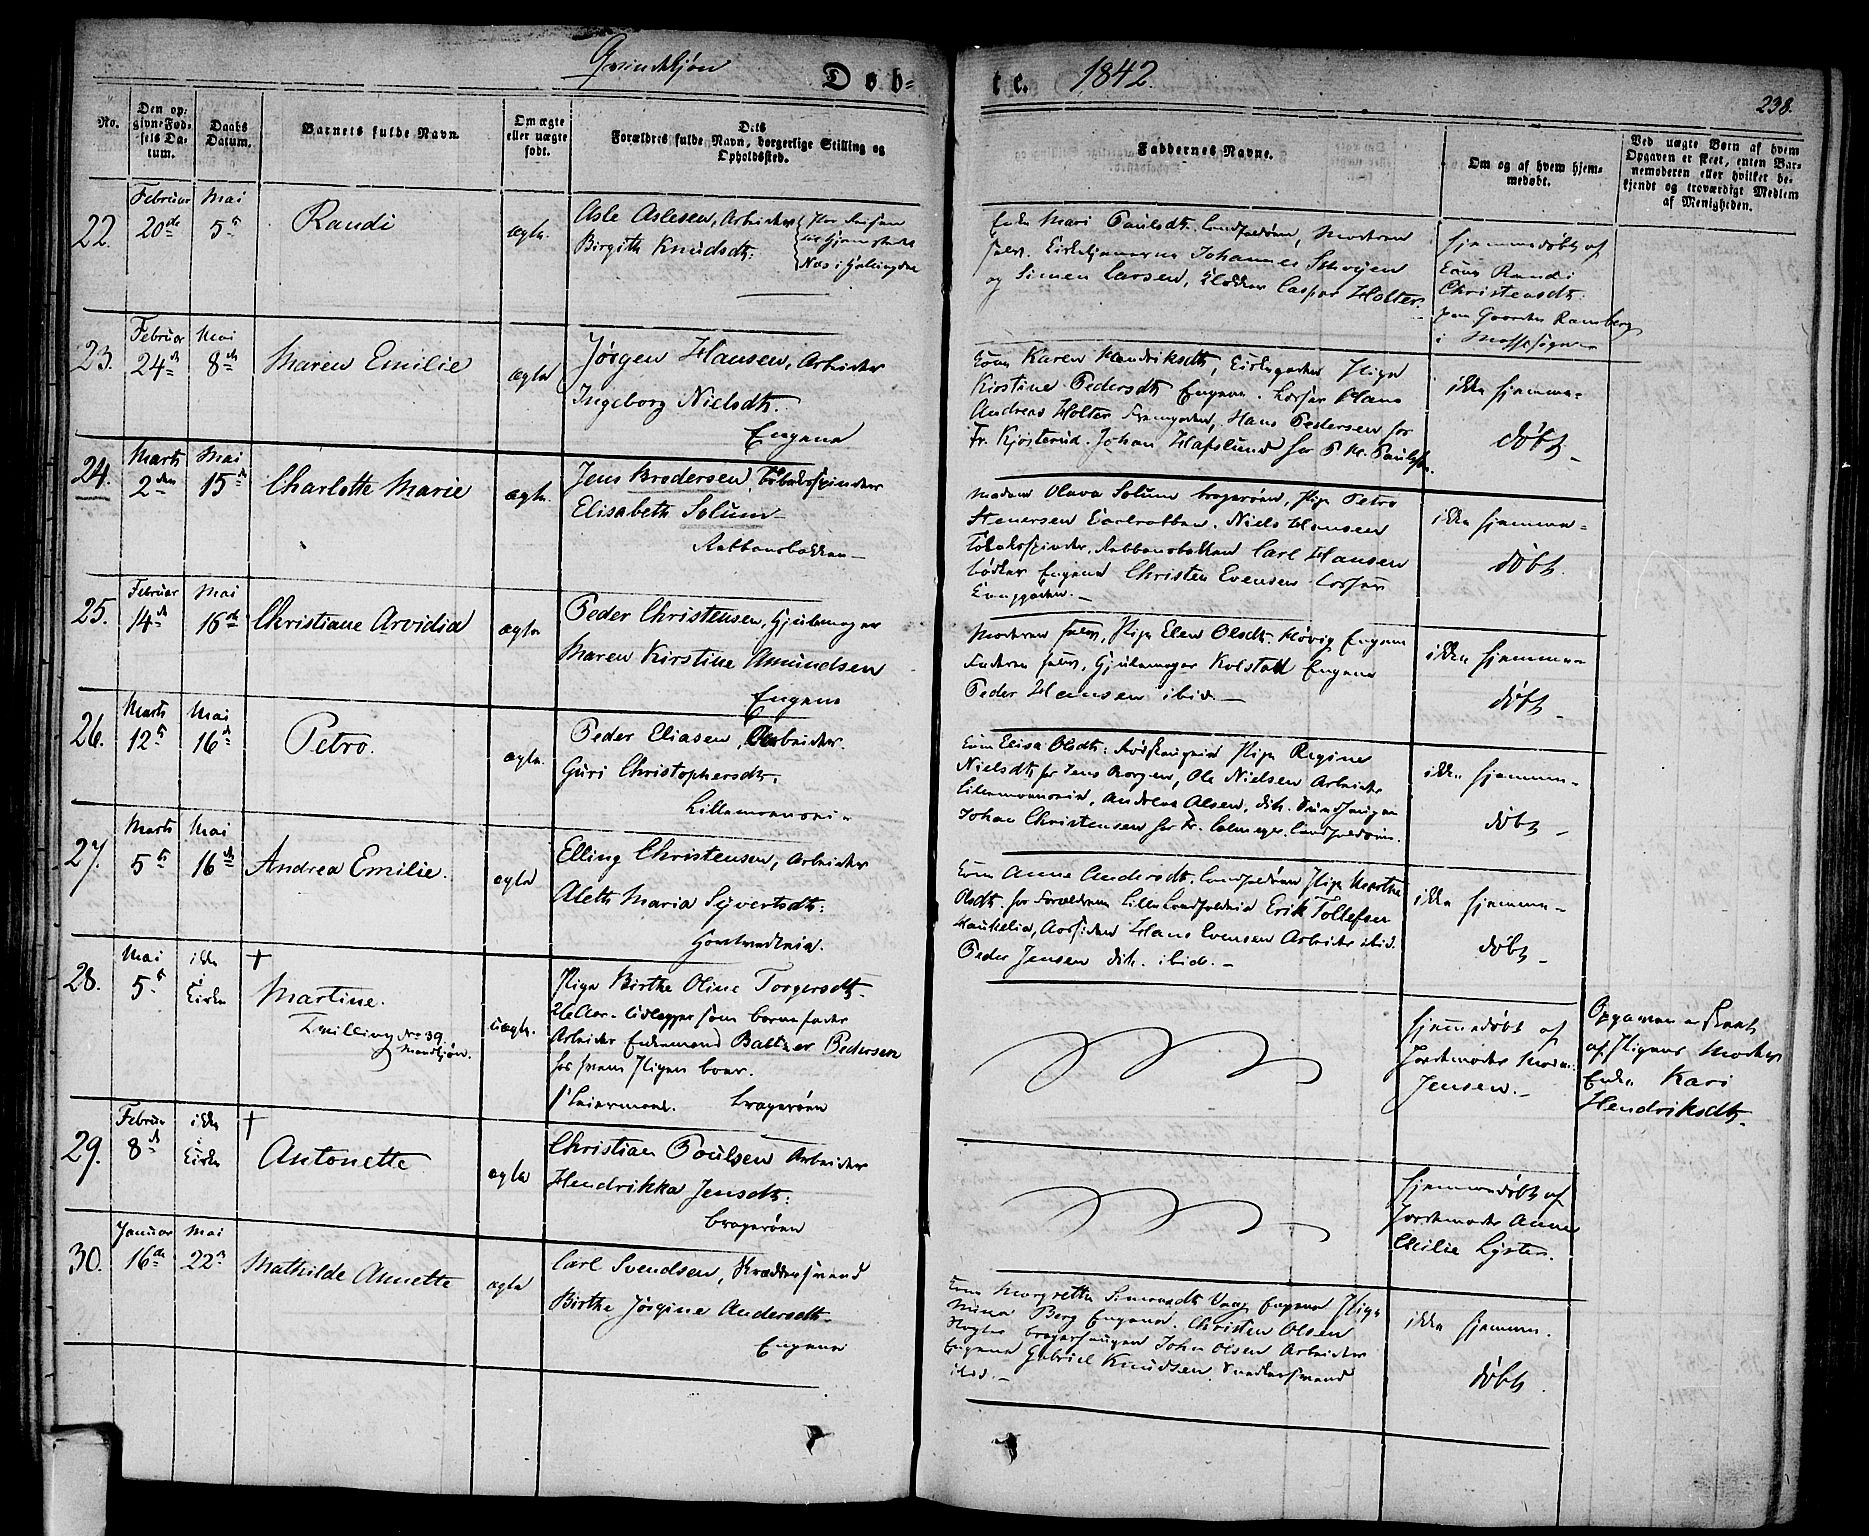 Qvindkjøn Døb-
te. 1842.
238.
No.
Den op-
givne Fød-
sels Da-
tum.
Daabs
Datum.
Barnets fulde Navn.
Om ægte
eller uægte
født.
Dets
Forældres fulde Navn, borgerlige Stilling og
Opholdssted.
Faddernes Navne.
Om og af hvem hjem-
medøbt.
Ved uægte Børn af hvem
Opgaven er skeet, enten Bar-
nemoderen eller hvilket be-
kjendt og troværdigt Medlem
af Menigheden.
22. Februar 20de Mai 5te Randi ægte.
Asle Aslesen, Arbeider
Birgith Knudsdtr.
Enke Mari Paulsdtr. Landfaldøen, Moderen
selv. Johannes
og Simen Larsen, Klokker Caspar Holter.
hjemmedøbt af
Kone Randi
Christensdtr.
23. Februar 24de Mai 8de Maren Emilie ægte
Jørgen Hansen, Arbeider
Ingeborg Nielsdtr.
Engene
Kone Karen Hendriksdtr, Pige
Kirstine Pedersdtr Engene. Hans
Andreas Holter Hans Pedersen for
Fr. Kjøsterud. Johan Hafslund for
ikke hjemme-
døbt
24. Marts 2den Mai 15de Charlotte Marie ægte.
Jens Brodersen, Tobakspinder
Elisabeth Solum
Rabbensbakken
Madame Olava Solum bragerøen, Pige Petra
Stenersen Niels Hansen
Tobakspinder, Rabbensbakken Carl Hansen
bødker Engene Christen Evensen
ikke hjemme-
døbt.
25. Februar 14de Mai 16de Christiane Arvidia ægte
Peder Christensen, Hjulemager
Maren Kirstine Amundsen
Engene
Moderen selv, Pige Elen Olsdtr. Høvig Engene
Faderen selv, Hjulemager Kolstad Engene
Peder Hansen ibid.
ikke hjemme-
døbt
26. Marts 12te Mai 16de Petra. ægte.
Peder Eliasen, Arbeider.
Guri Christophersdtr.
Kone Elisa Olsdtr. Pige Regine
Nielsdtr for Jens Borgen, Ole Nielsen Arbeider
Andreas Olsen, dito.
Johan Christensen for Fr.
ikke hjemme-
døbt
27. Marts 5te Mai 16de Andrea Emilie. ægte
Elling Christensen, Arbeider
Aleth Maria Syvertsdtr.
Kone Anne Andersdtr. Landfaldøen Pige Marthe
Olsdtr. for Forældrene Erik Tollefsen
Hans Evensen Arbeider ibid.
Peder Jensen dito. ibid.
ikke hjemme-
døbt
28. Mai 5te ikke i Kirke †
Martine.
Tvilling No 39
Mandkjøn.
uægte.
Pige Birthe Oline Torgersdtr.
26 Aar. Udlægger som barnefader
Arbeider Enkemand Baltzer Pedersen
hos hvem Pigen boer.
Leiermaal. bragerøen
hjemmedøbt af
Jordemoder
Jensen.
Opgaven er skeet
af Pigens Moder
Enke Kari
Hendriksdtr.
29. Februar 8de ikke i Kirke †
Antonette ægte
Christian Poulsen Arbeider
Hendrikka Jensdtr.
bragerøen
hjemmedøbt af
Jordemoder Anne
Cecilie Lyster.
30. Januar 16de Mai 22de Mathilde Annette ægte
Carl Svendsen, Skræddersvend
Birthe Jørgine Andersdtr.
Engene
Kone Margrethe Simensdtr Vaag Engene Pige
Mina Berg Engene. Christen Olsen
John Olsen Arbeider
Engene Gabriel Knudsen, Snedkersvend
ibid.
ikke hjemme.
døbt.